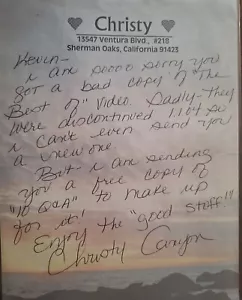 Christy
13547 Ventura Blvd., #218
Sherman Oaks, California 91423
Kevin-
i am soooo sorry you
got a bad copy of "The
Best of" video. Sadly-they
were discontinued 11.04 so
i can't even send you
a new one.
But- i am sending
you a free copy of
"10 Q&A" to make up
for it!
Enjoy the "good stuff"!
Christy Canyon